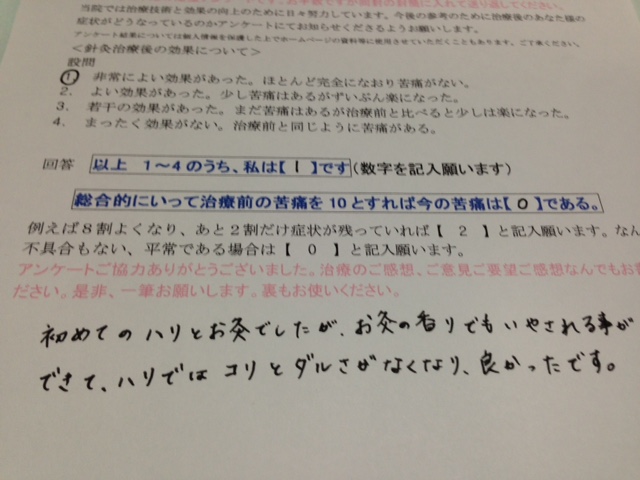 です。お手数ですが同封の封筒に入れて送り返してください。
当院では治療技術と効果の向上のために日々努力しています。今後の参考のために治療後のあなた様の
症状がどうなっているのかアンケートにてお知らせくださるようお願いします。
アンケート結果については個人情報を保護した上でホームページの資料等に使用させていただくこともあります。ご了承ください。
＜針灸治療後の効果について＞
設問
1. 非常によい効果があった。ほとんど完全になおり苦痛がない。
2. よい効果があった。少し苦痛はあるがずいぶん楽になった。
3. 若干の効果があった。まだ苦痛はあるが治療前と比べると少しは楽になった。
4. まったく効果がない。治療前と同じように苦痛がある。
回答 以上 1～4のうち、私は【 1 】です(数字を記入願います)
総合的にいって治療前の苦痛を10とすれば今の苦痛は【 0 】である。
例えば８割よくなり、あと２割だけ症状が残っていれば【 ２ 】と記入願います。なん
不具合もない、平常である場合は【 ０ 】と記入願います。
アンケートご協力ありがとうございました。治療のご感想、ご意見ご要望ご感想なんでもお
ださい。是非、一筆お願いします。裏もお使いください。
初めてのハリとお灸でしたが、お灸の香りでもいやされる事が
できて、ハリではコリとダルさがなくなり、良かったです。